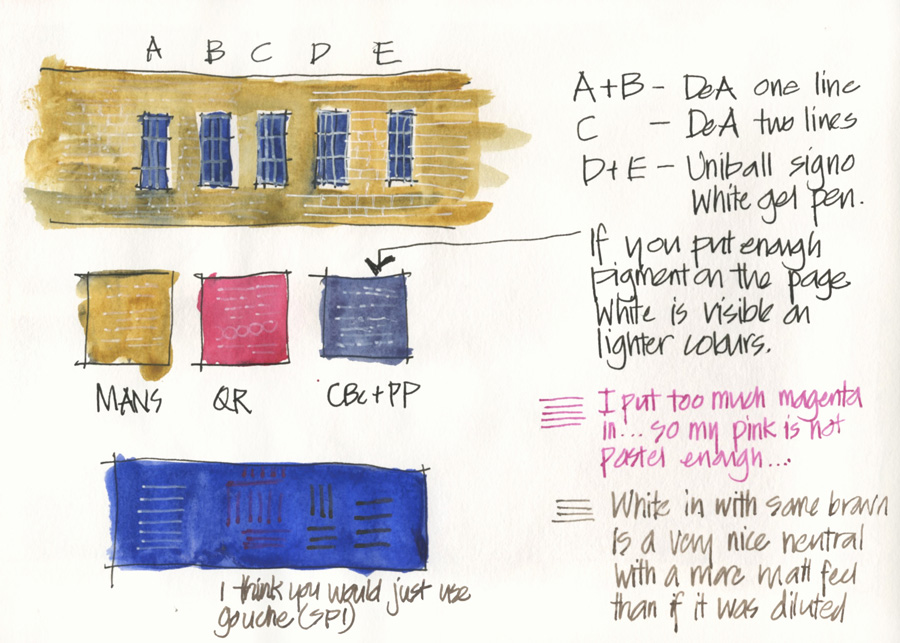 A B C D E
A+B - DeA one line
C - DeA two lines
D+E - Uniball signo
white gel pen.
If you put enough
pigment on the page
white is visible on
lighter colours.
MANS QR CBc+PP
I put too much magenta
in... so my pink is not
pastel enough...
White in with some brown
Is a very nice neutral
with a more matt feel
than if it was diluted
I think you would just use
gouche (SP1)